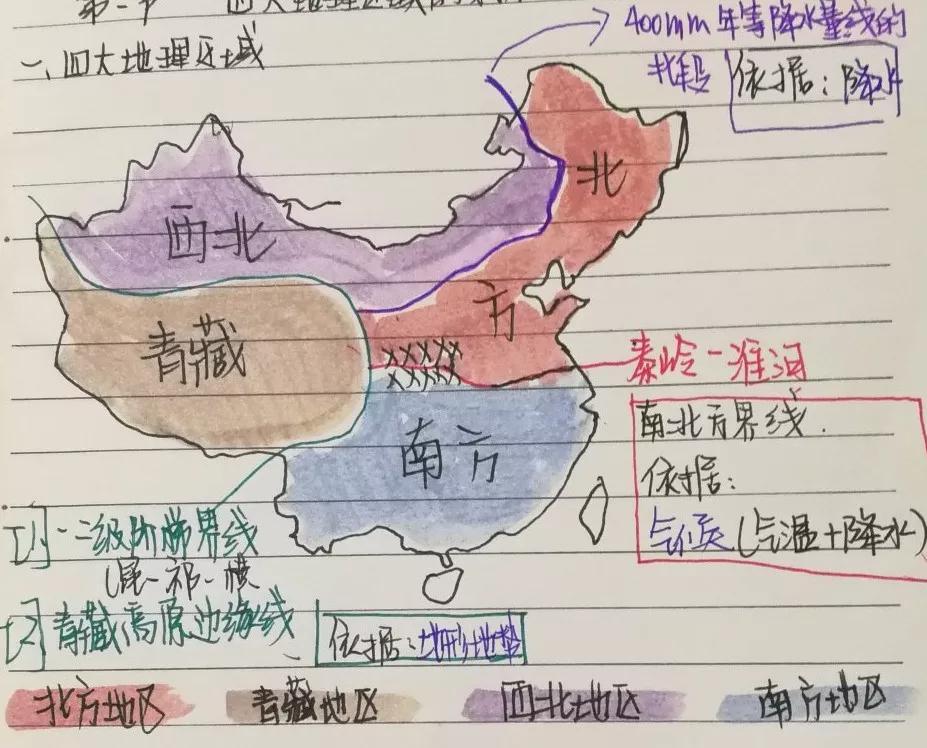 第一节 四大地理区域的
一、四大地理区域
400mm年等降水量线的
北段
依据：降水
北
西北
方
青藏
秦岭-淮河
南方
南北方界线.
依据：
气候(气温+降水)
[1]一二级阶梯界线
(昆-祁-横
[2]青藏高原边缘线
依据：地形地势
北方地区
青藏地区
西北地区
南方地区